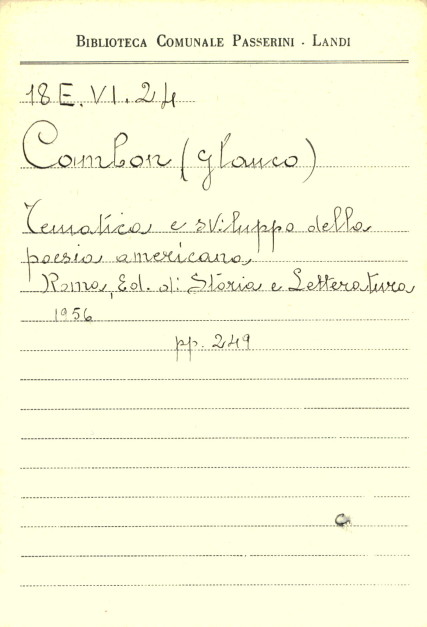 BIBLIOTECA COMUNALE PASSERINI - LANDI
18 E. VI. 24
Cambon (Glauco)
Tematica e sviluppo della
poesia americana
Roma, Ed. di Storia e Letteratura
1956
pp. 249